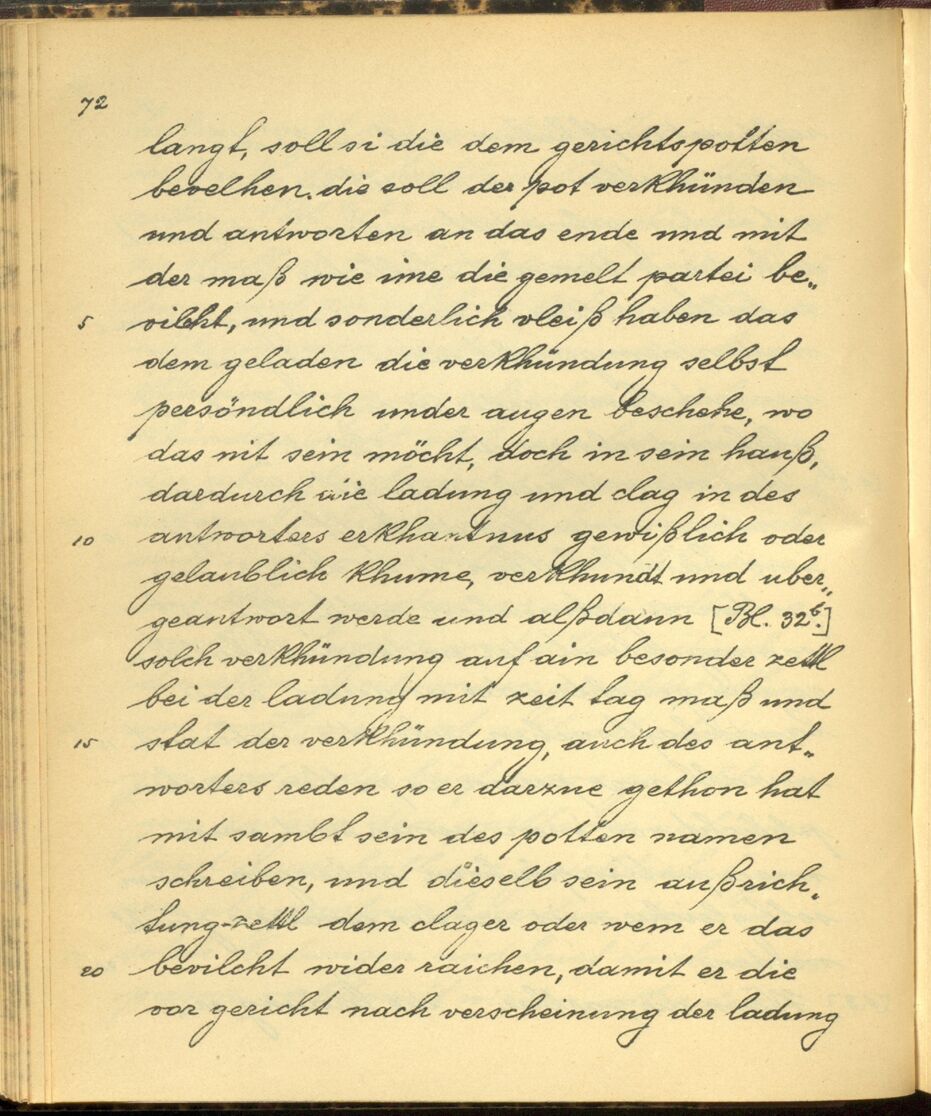 72
langt, soll si die dem gerichtspotten
bevelhen. die soll der pot verkhünden
und antworten an das ende und mit
der maß wie ime die gemelt partei be„
5 vilcht, und sonderlich vleiß haben das
dem geladen die verkhündung selbst
persöndlich under augen beschehe, wo
das nit sein möcht, doch in sein hauß,
dardurch die ladung und clag in des
10 antworters erkhantnus gewißlich oder
gelaublich khume, verkhundt und uber„
geantwort werde und alßdann [Bl. 32b.]
solch verkhündung auf ain besonder zettl
bei der ladung mit zeit tag maß und
15 stat der verkhündung, auch des ant„
worters reden so er darzue gethon hat
mit sambt sein des potten namen
schreiben, und dieselb sein außrich„
tung-zettl dem clager oder wem er das
20 bevilcht wider raichen, damit er die
vor gericht nach verscheinung der ladung